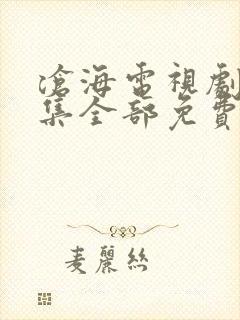 滄海電視劇
集全部免費
麦麗絲